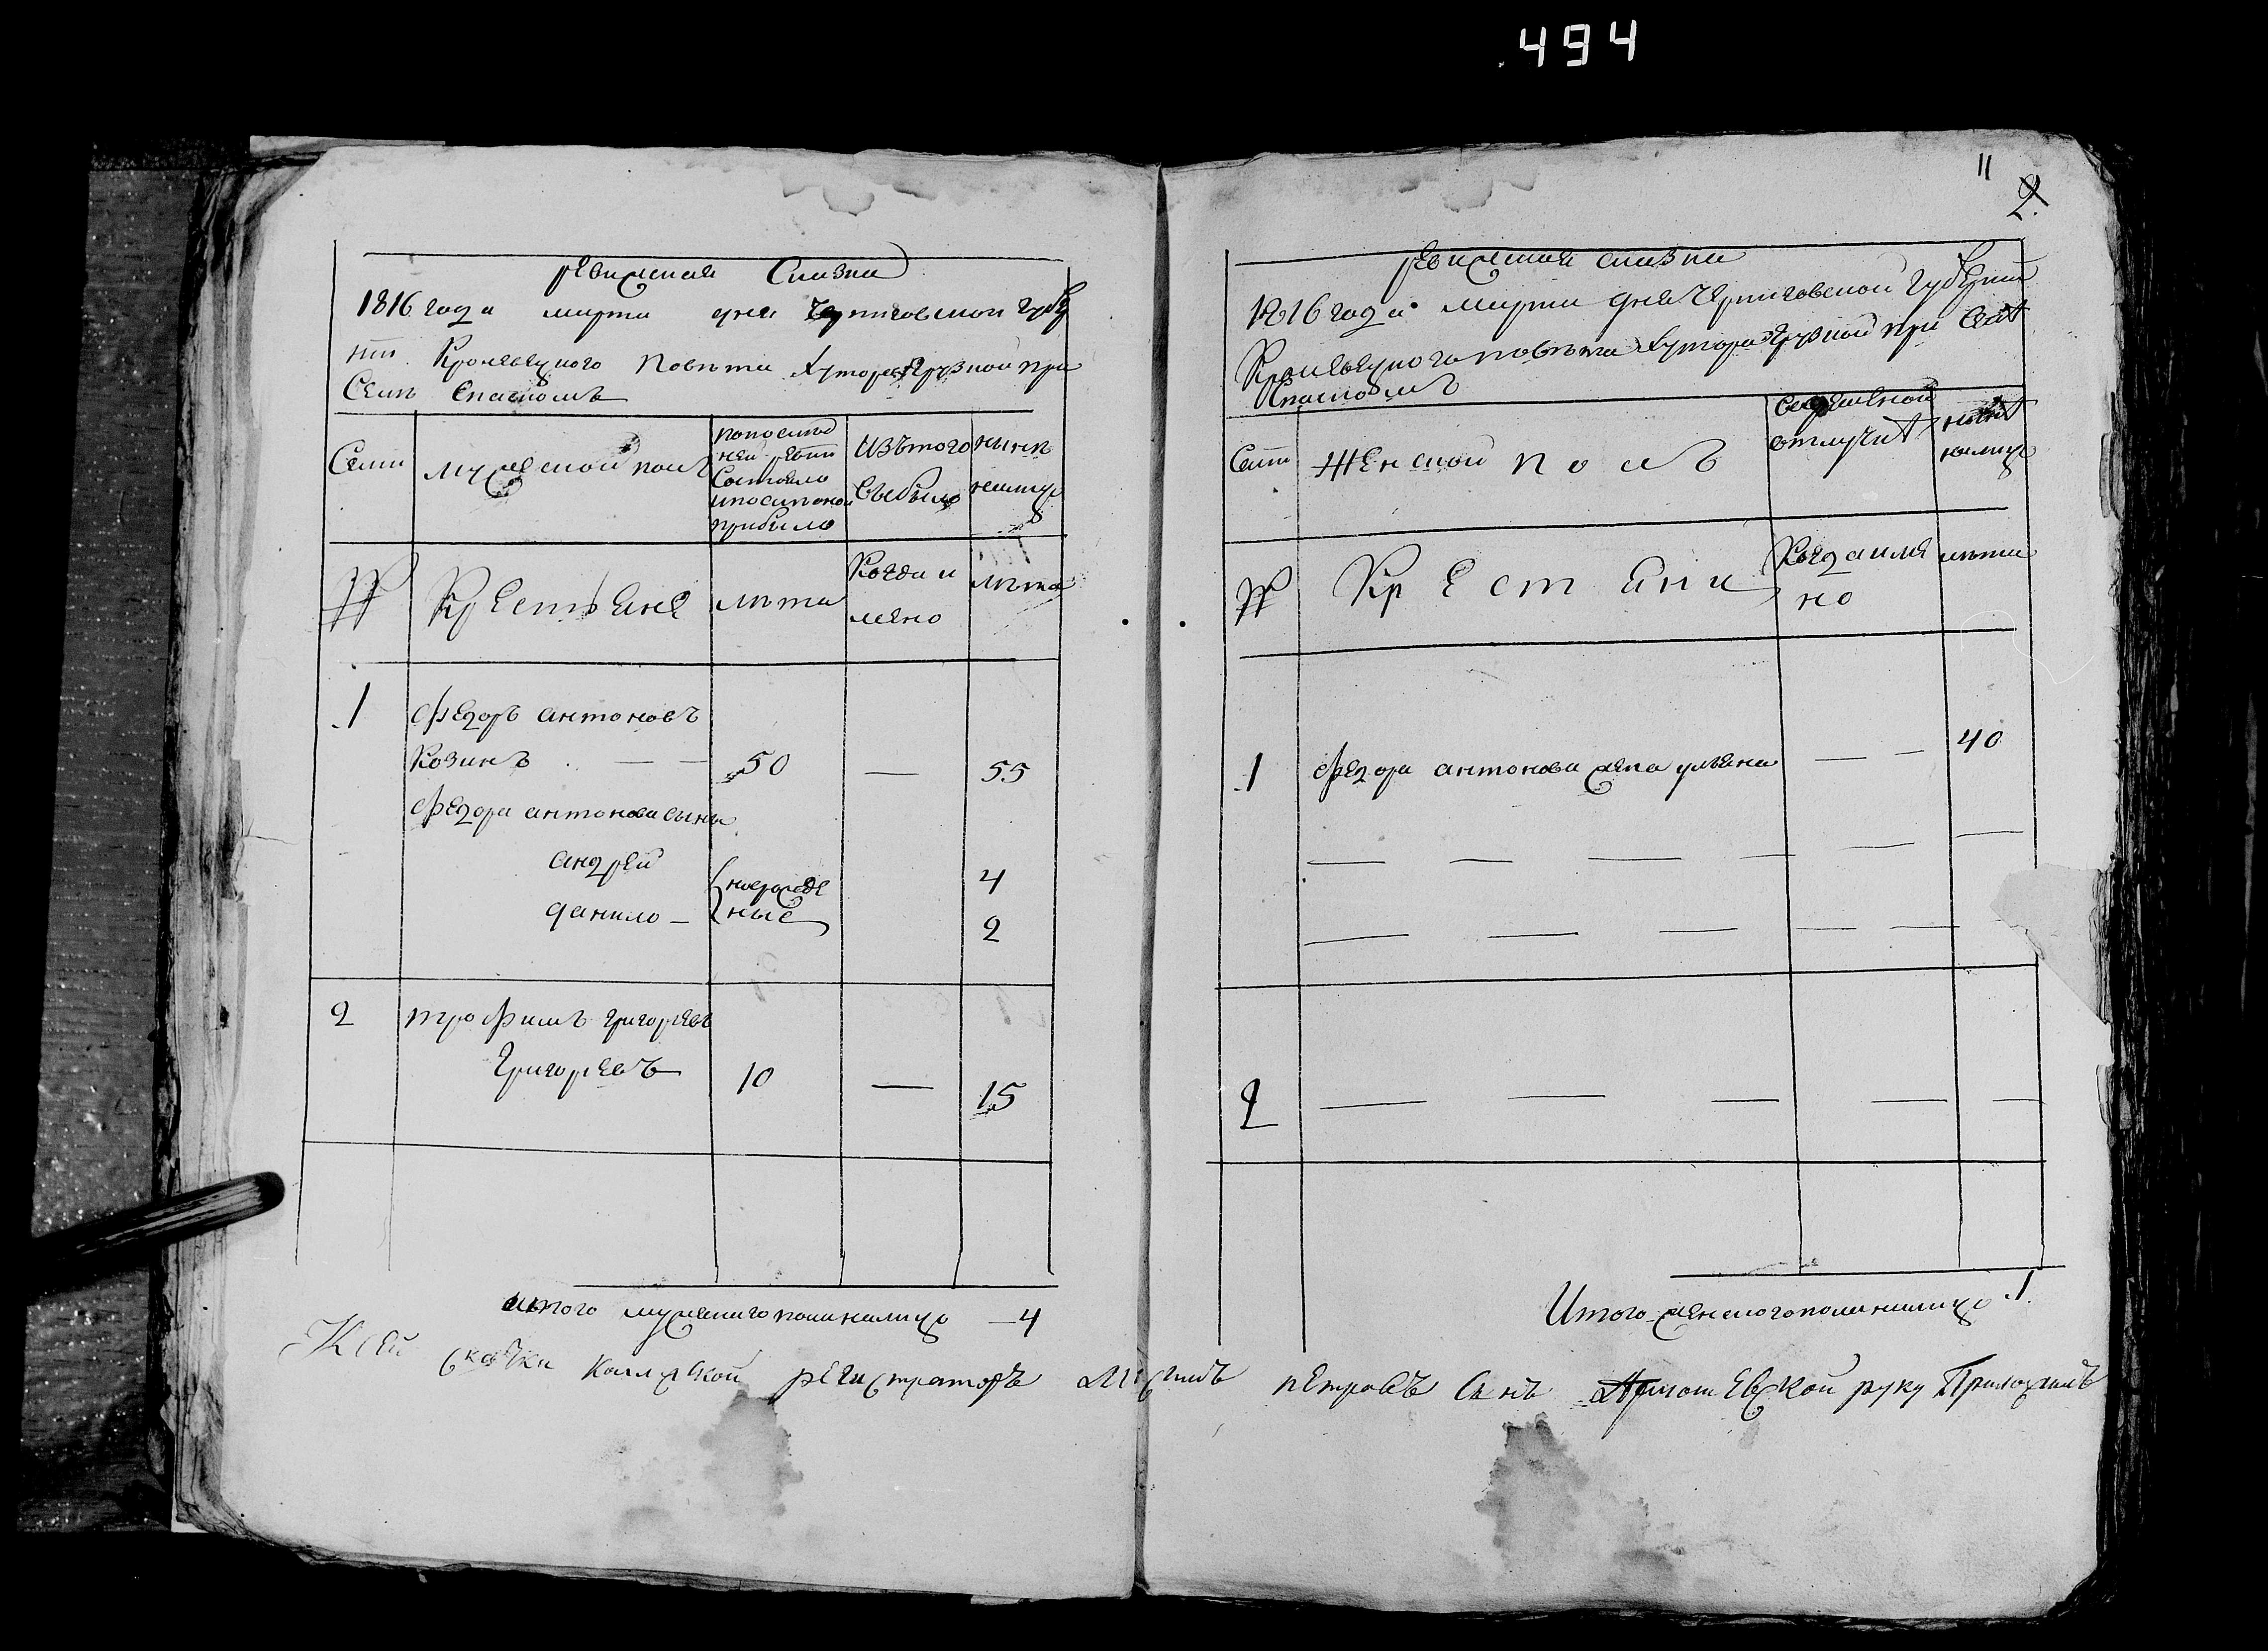 494
ревижская сказка
1816 года марта дня Черниговской губер
нии Кролевецкого повета хутора Грузкой при
селе Спаском
Семи
мужеской полъ
по послед
ней реви
состояло
и после оной
прибыло
изъ того
выбыло
ныне
налицо
№
Крестьяне
лета
Когда и
мено
лета
1
Федоръ антоновъ
Козинъ — — 50 — 55
Федора антонова сыны
андрей
новорожде
4
данило —
ные
2
2 трофимъ григорьевъ
Григорьевъ 10 — 15
итого мужеского пола налицо — 4
11
2.
ревижская сказка
1816 года марта дня Черниговской губернии
Кролевецкого повета хутора Грузкой при селе
Спаском
Семи
Женской полъ
отлучке
ныне
налицо
№
Крестяни
Когда име
но
лета
1 Федора антонова жена ульяна — — 40
— — — — — —
— — — — —
2 — — — — —
Итого женского пола налицо 1.
К сей скаски коллежской регистраторъ петровъ сынъ руку Приложилъ